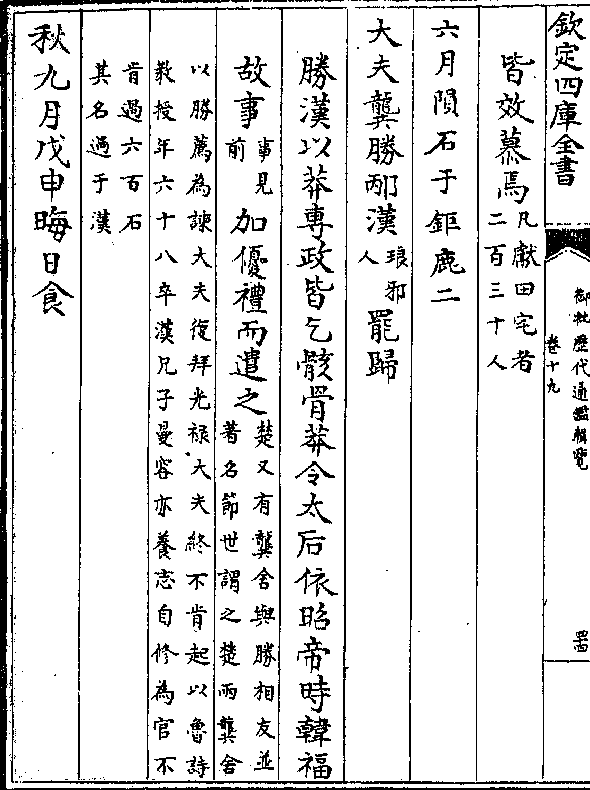 欽定四庫全書
御批歷代通鑑輯覽
卷十九
四四
皆效慕焉凡獻田宅者二百三十人
六月隕石于鉅鹿二
大夫龔勝邴漢琅邪人罷歸
勝漢以莽專政皆乞骸骨莽令太后依昭帝時韓福
故事事見前加優禮而遣之楚又有龔舍與勝相友並著名節世謂之楚兩龔舍
以勝薦為諫大夫復拜光禄大夫終不肯起以魯詩
教授年六十八卒漢兄子曼容亦養志自修為官不
肯過六百石
其名過于漢
秋九月戊申晦日食